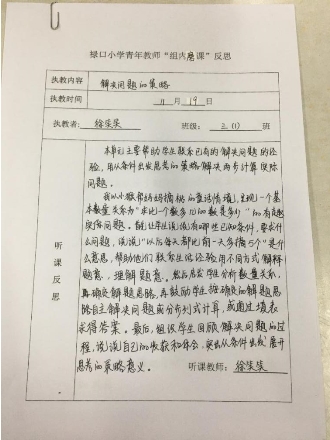 绿口小学青年教师“组内磨课”反思
执教内容 解决问题的策略
执教时间 11 月 19 日
执教者: 徐荣荣 班级: 三(1) 班
听课反思
本单元主要帮助学生联系已有的解决问题的经
验,用从条件出发思考的策略解决两步计算实际
问题。
我以小猴帮妈妈摘桃的童话情境,呈现一个基
本数量关系为“求比一个数多几的数是多少”的有趣
实际问题。先让学生说说有哪些已知条件,要求什
么问题,说说“以后每天都比前一天多摘5个”是什
么意思,帮助他们联系生活经验用不同方式解释
题意,理解题意。然后启发学生分析数量关系,
再确定解题思路,再鼓励学生按确定的解题思
路自主解决问题或分列式计算,或通过填表
求得答案。最后,组织学生回顾解决问题的过
程,说说自己的收获和体会,突出从条件出发展开
思考的策略意义。
听课教师: 徐荣荣